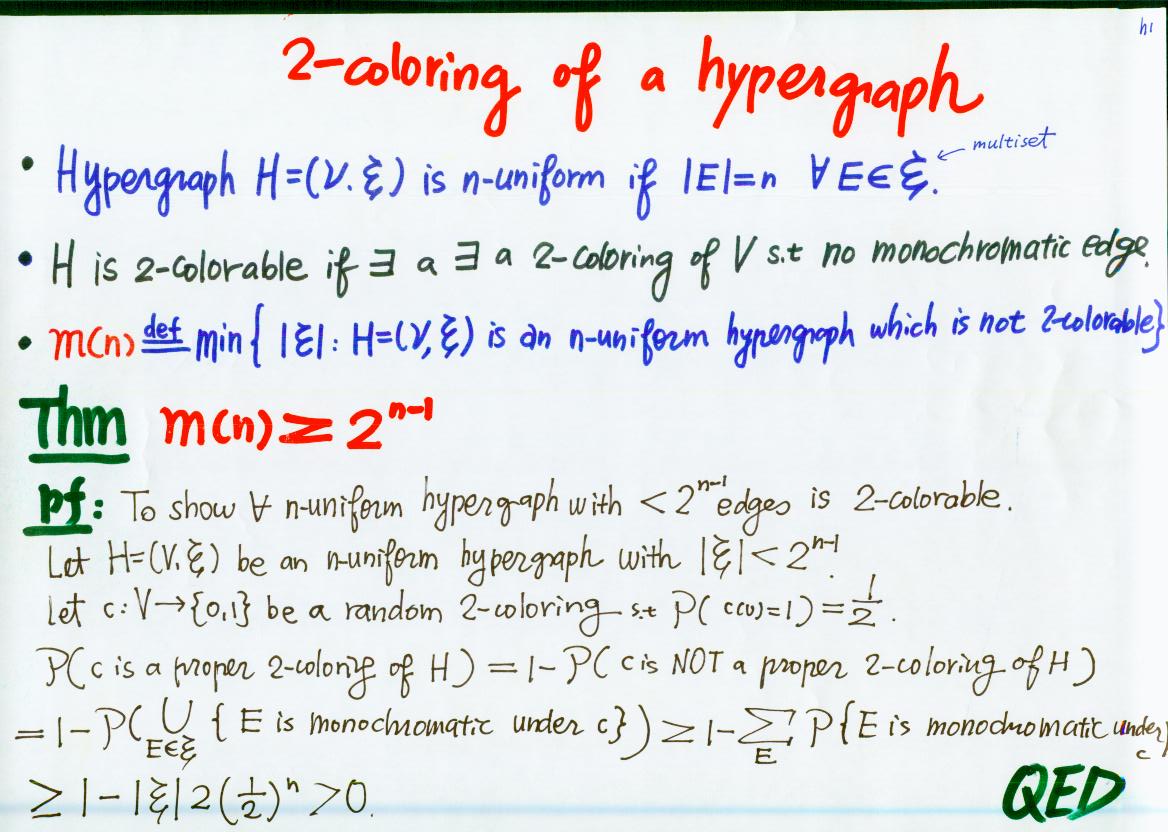 h1
2-coloring of a hypergraph
• Hypergraph H=(V.ξ) is n-uniform if |E|=n ∀E∈ξ. ← multiset
• H is 2-colorable if ∃ a ∃ a 2-coloring of V s.t no monochromatic edge.
• m(n) def= min{ |ξ| : H=(V,ξ) is an n-uniform hypergraph which is not 2-colorable}
Thm m(n) ≥ 2^{n-1}
pf: To show ∀ n-uniform hypergraph with < 2^{n-1} edges is 2-colorable.
Let H=(V,ξ) be an n-uniform hypergraph with |ξ| < 2^{n-1}.
let c:V→{0,1} be a random 2-coloring s.t P( c(v)=1 ) = 1/2.
P( c is a proper 2-coloring of H ) = 1- P( c is NOT a proper 2-coloring of H )
= 1- P( ∪_{E∈ξ} { E is monochromatic under c} ) ≥ 1- Σ_E P{ E is monochromatic under c}
≥ 1- |ξ| 2 (1/2)^n > 0.
QED